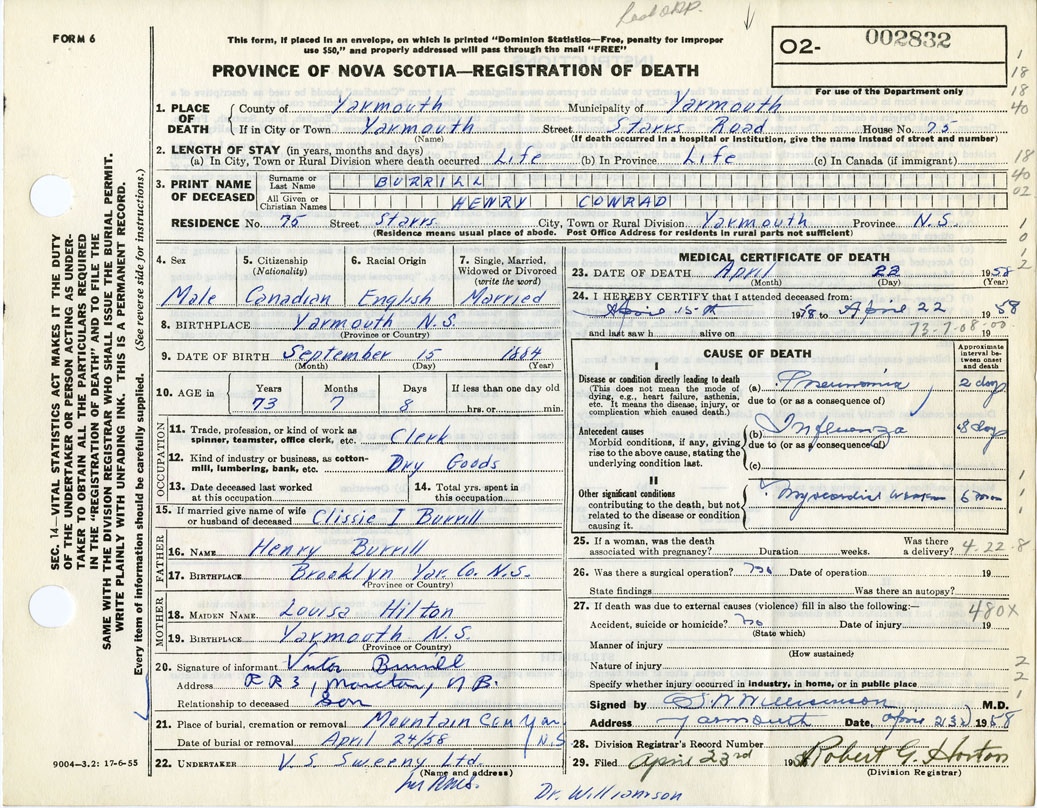 Lead O.R.P.
FORM 6
This form, if placed in an envelope, on which is printed "Dominion Statistics—Free, penalty for improper
use $50," and properly addressed will pass through the mail "FREE"
PROVINCE OF NOVA SCOTIA—REGISTRATION OF DEATH
O2- 002832
For use of the Department only
1. PLACE OF DEATH { County of Yarmouth Municipality of Yarmouth
If in City or Town Yarmouth Street Starrs Road House No. 75
(Name) (If death occurred in a hospital or institution, give the name instead of street and number)
2. LENGTH OF STAY (in years, months and days)
(a) In City, Town or Rural Division where death occurred Life (b) In Province Life (c) In Canada (if immigrant)
3. PRINT NAME OF DECEASED { Surname or Last Name BURRILL
All Given or Christian Names HENRY CONRAD
RESIDENCE No. 75 Street Starrs City, Town or Rural Division Yarmouth Province N.S.
(Residence means usual place of abode. Post Office Address for residents in rural parts not sufficient)
4. Sex Male
5. Citizenship (Nationality) Canadian
6. Racial Origin English
7. Single, Married, Widowed or Divorced (write the word) Married
8. BIRTHPLACE Yarmouth N.S.
(Province or Country)
9. DATE OF BIRTH September 15 1884
(Month) (Day) (Year)
10. AGE in { Years 73 Months 7 Days 8 If less than one day old hrs. or min.
OCCUPATION
11. Trade, profession, or kind of work as spinner, teamster, office clerk, etc. Clerk
12. Kind of industry or business, as cotton-mill, lumbering, bank, etc. Dry Goods
13. Date deceased last worked at this occupation
14. Total yrs. spent in this occupation
15. If married give name of wife or husband of deceased Clissie I Burrill
FATHER
16. NAME Henry Burrill
17. BIRTHPLACE Brooklyn Yar. Co. N.S.
(Province or Country)
MOTHER
18. MAIDEN NAME Louisa Hilton
19. BIRTHPLACE Yarmouth N.S.
(Province or Country)
20. Signature of informant Victor Burrill
Address RR3, Moncton, N.B.
Relationship to deceased Son
21. Place of burial, cremation or removal Mountain Cem Yar. N.S
Date of burial or removal April 24/58
22. UNDERTAKER V.S. Sweeny Ltd.
(Name and address)
Dr. Williamson
MEDICAL CERTIFICATE OF DEATH
23. DATE OF DEATH April 22 1958
(Month) (Day) (Year)
24. I HEREBY CERTIFY that I attended deceased from:
April 15th 1958 to April 22 1958
and last saw h alive on 19
73-7-08-00
CAUSE OF DEATH
Approximate interval between onset and death
I
Disease or condition directly leading to death (a) Pneumonia 2 days
(This does not mean the mode of dying, e.g., heart failure, asthenia, etc. It means the disease, injury, or complication which caused death.)
due to (or as a consequence of)
Antecedent causes (b) Influenza 8 days
Morbid conditions, if any, giving rise to the above cause, stating the underlying condition last.
due to (or as a consequence of)
(c)
II
Other significant conditions Myocardial
contributing to the death, but not related to the disease or condition causing it.
25. If a woman, was the death associated with pregnancy? Duration weeks. Was there a delivery?
4.22.8
26. Was there a surgical operation? no Date of operation 19
State findings Was there an autopsy?
27. If death was due to external causes (violence) fill in also the following:—
480X
Accident, suicide or homicide? no Date of injury 19
(State which)
Manner of injury
(How sustained)
Nature of injury
Specify whether injury occurred in industry, in home, or in public place
Signed by S.W. Williamson M.D.
Address Yarmouth Date, April 23 1958
28. Division Registrar's Record Number
29. Filed April 23rd 1958 Robert G. Horton
(Division Registrar)
SEC. 14—VITAL STATISTICS ACT MAKES IT THE DUTY
OF THE UNDERTAKER OR PERSON ACTING AS UNDER-
TAKER TO OBTAIN ALL THE PARTICULARS REQUIRED
IN THE "REGISTRATION OF DEATH" AND TO FILE THE
SAME WITH THE DIVISION REGISTRAR WHO SHALL ISSUE THE BURIAL PERMIT.
WRITE PLAINLY WITH UNFADING INK. THIS IS A PERMANENT RECORD.
Every item of information should be carefully supplied. (See reverse side for instructions.)
9004-3.2: 17-6-55
1
18
18
40
18
40
02
1
0
1
2
1
1
1
2
2
1